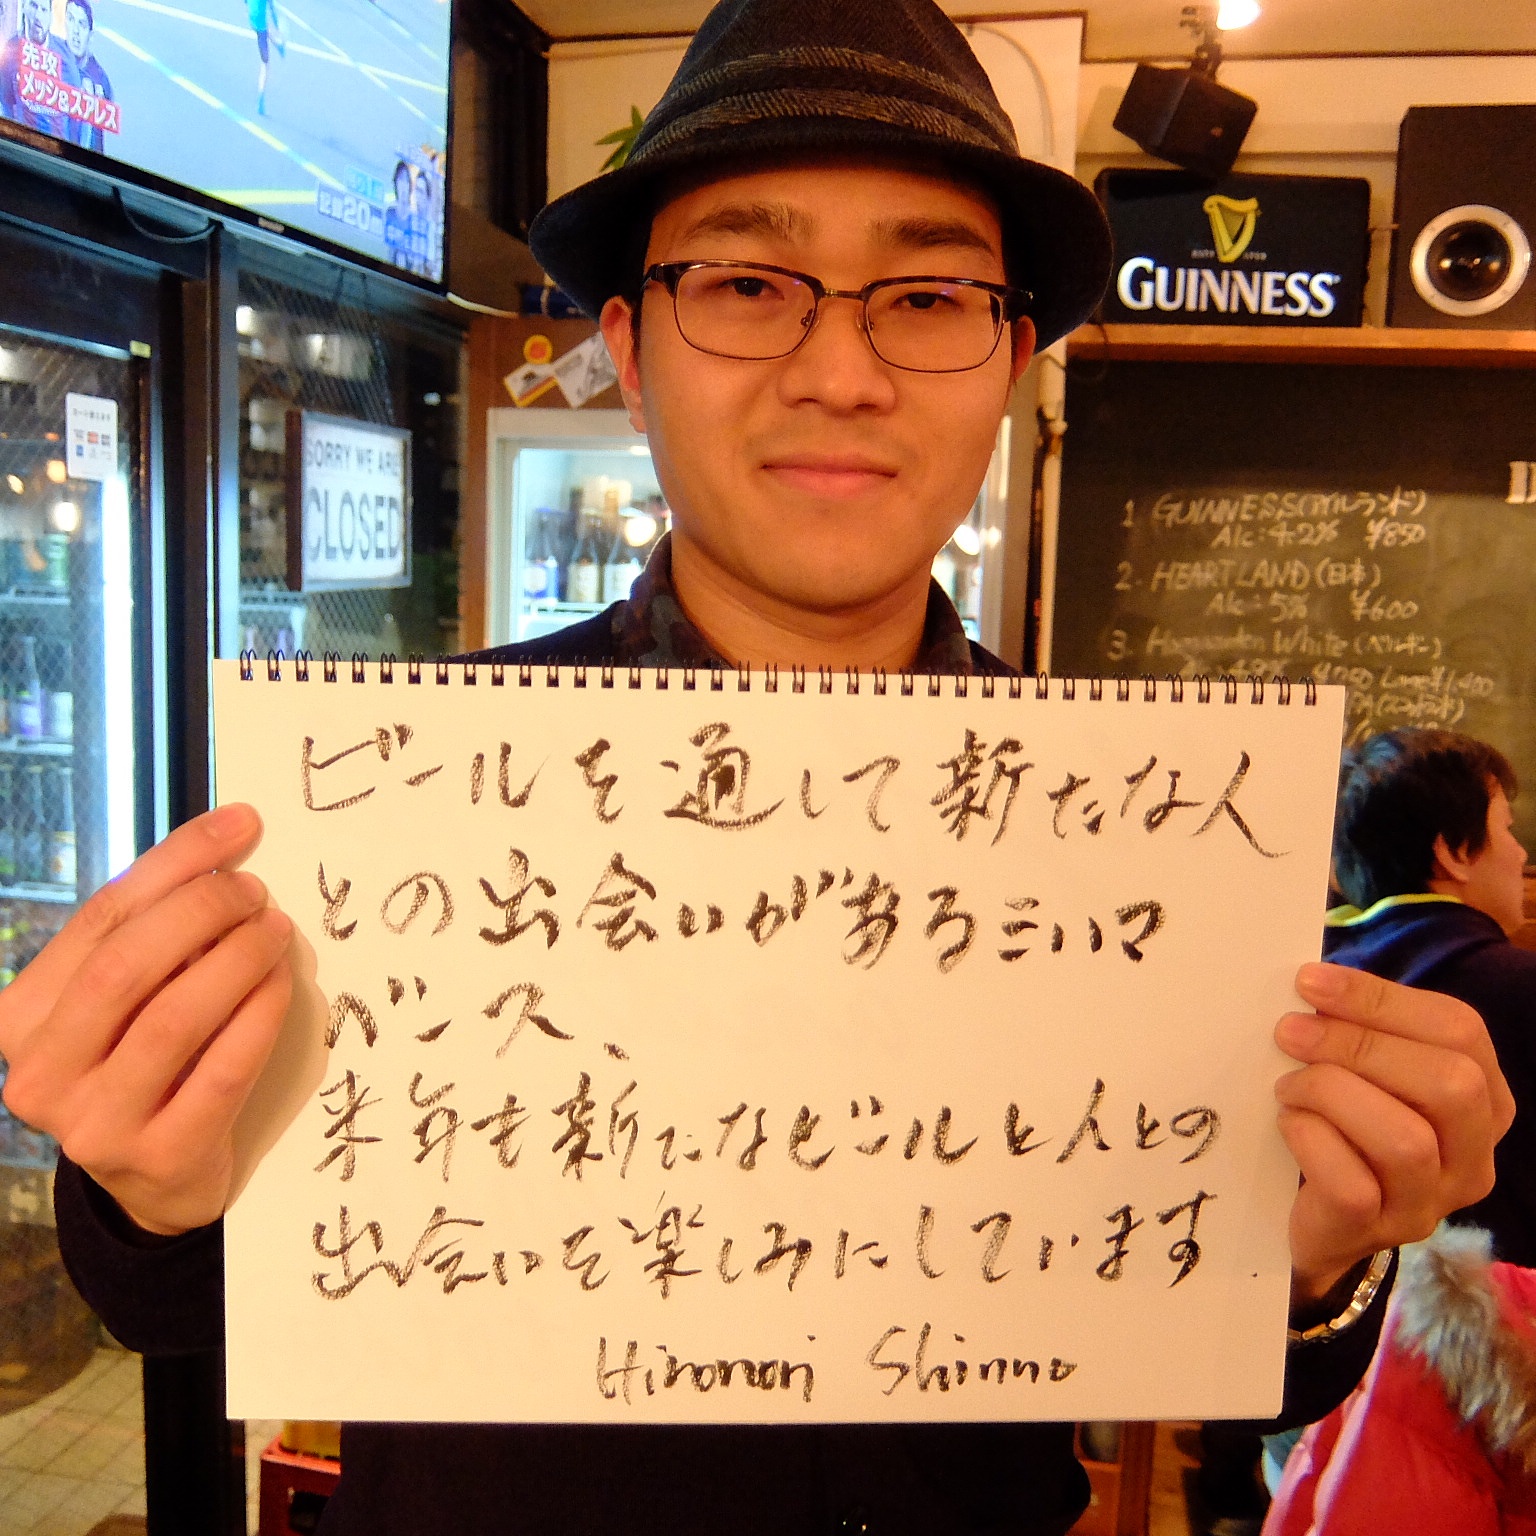 先攻
メッシ&スアレス
記録20m
GUINNESS
SORRY WE ARE
CLOSED
1 GUINNESS(アイルランド)
Alc:4.2% ¥850
2. HEARTLAND(日本)
Alc:5% ¥600
3. Hoegaarden White(ベルギー)
ビールを通して新たな人
との出会いがあるミハマ
ベース、
来年も新たなビールと人との
出会いを楽しみにしています.
Hironori Shinno